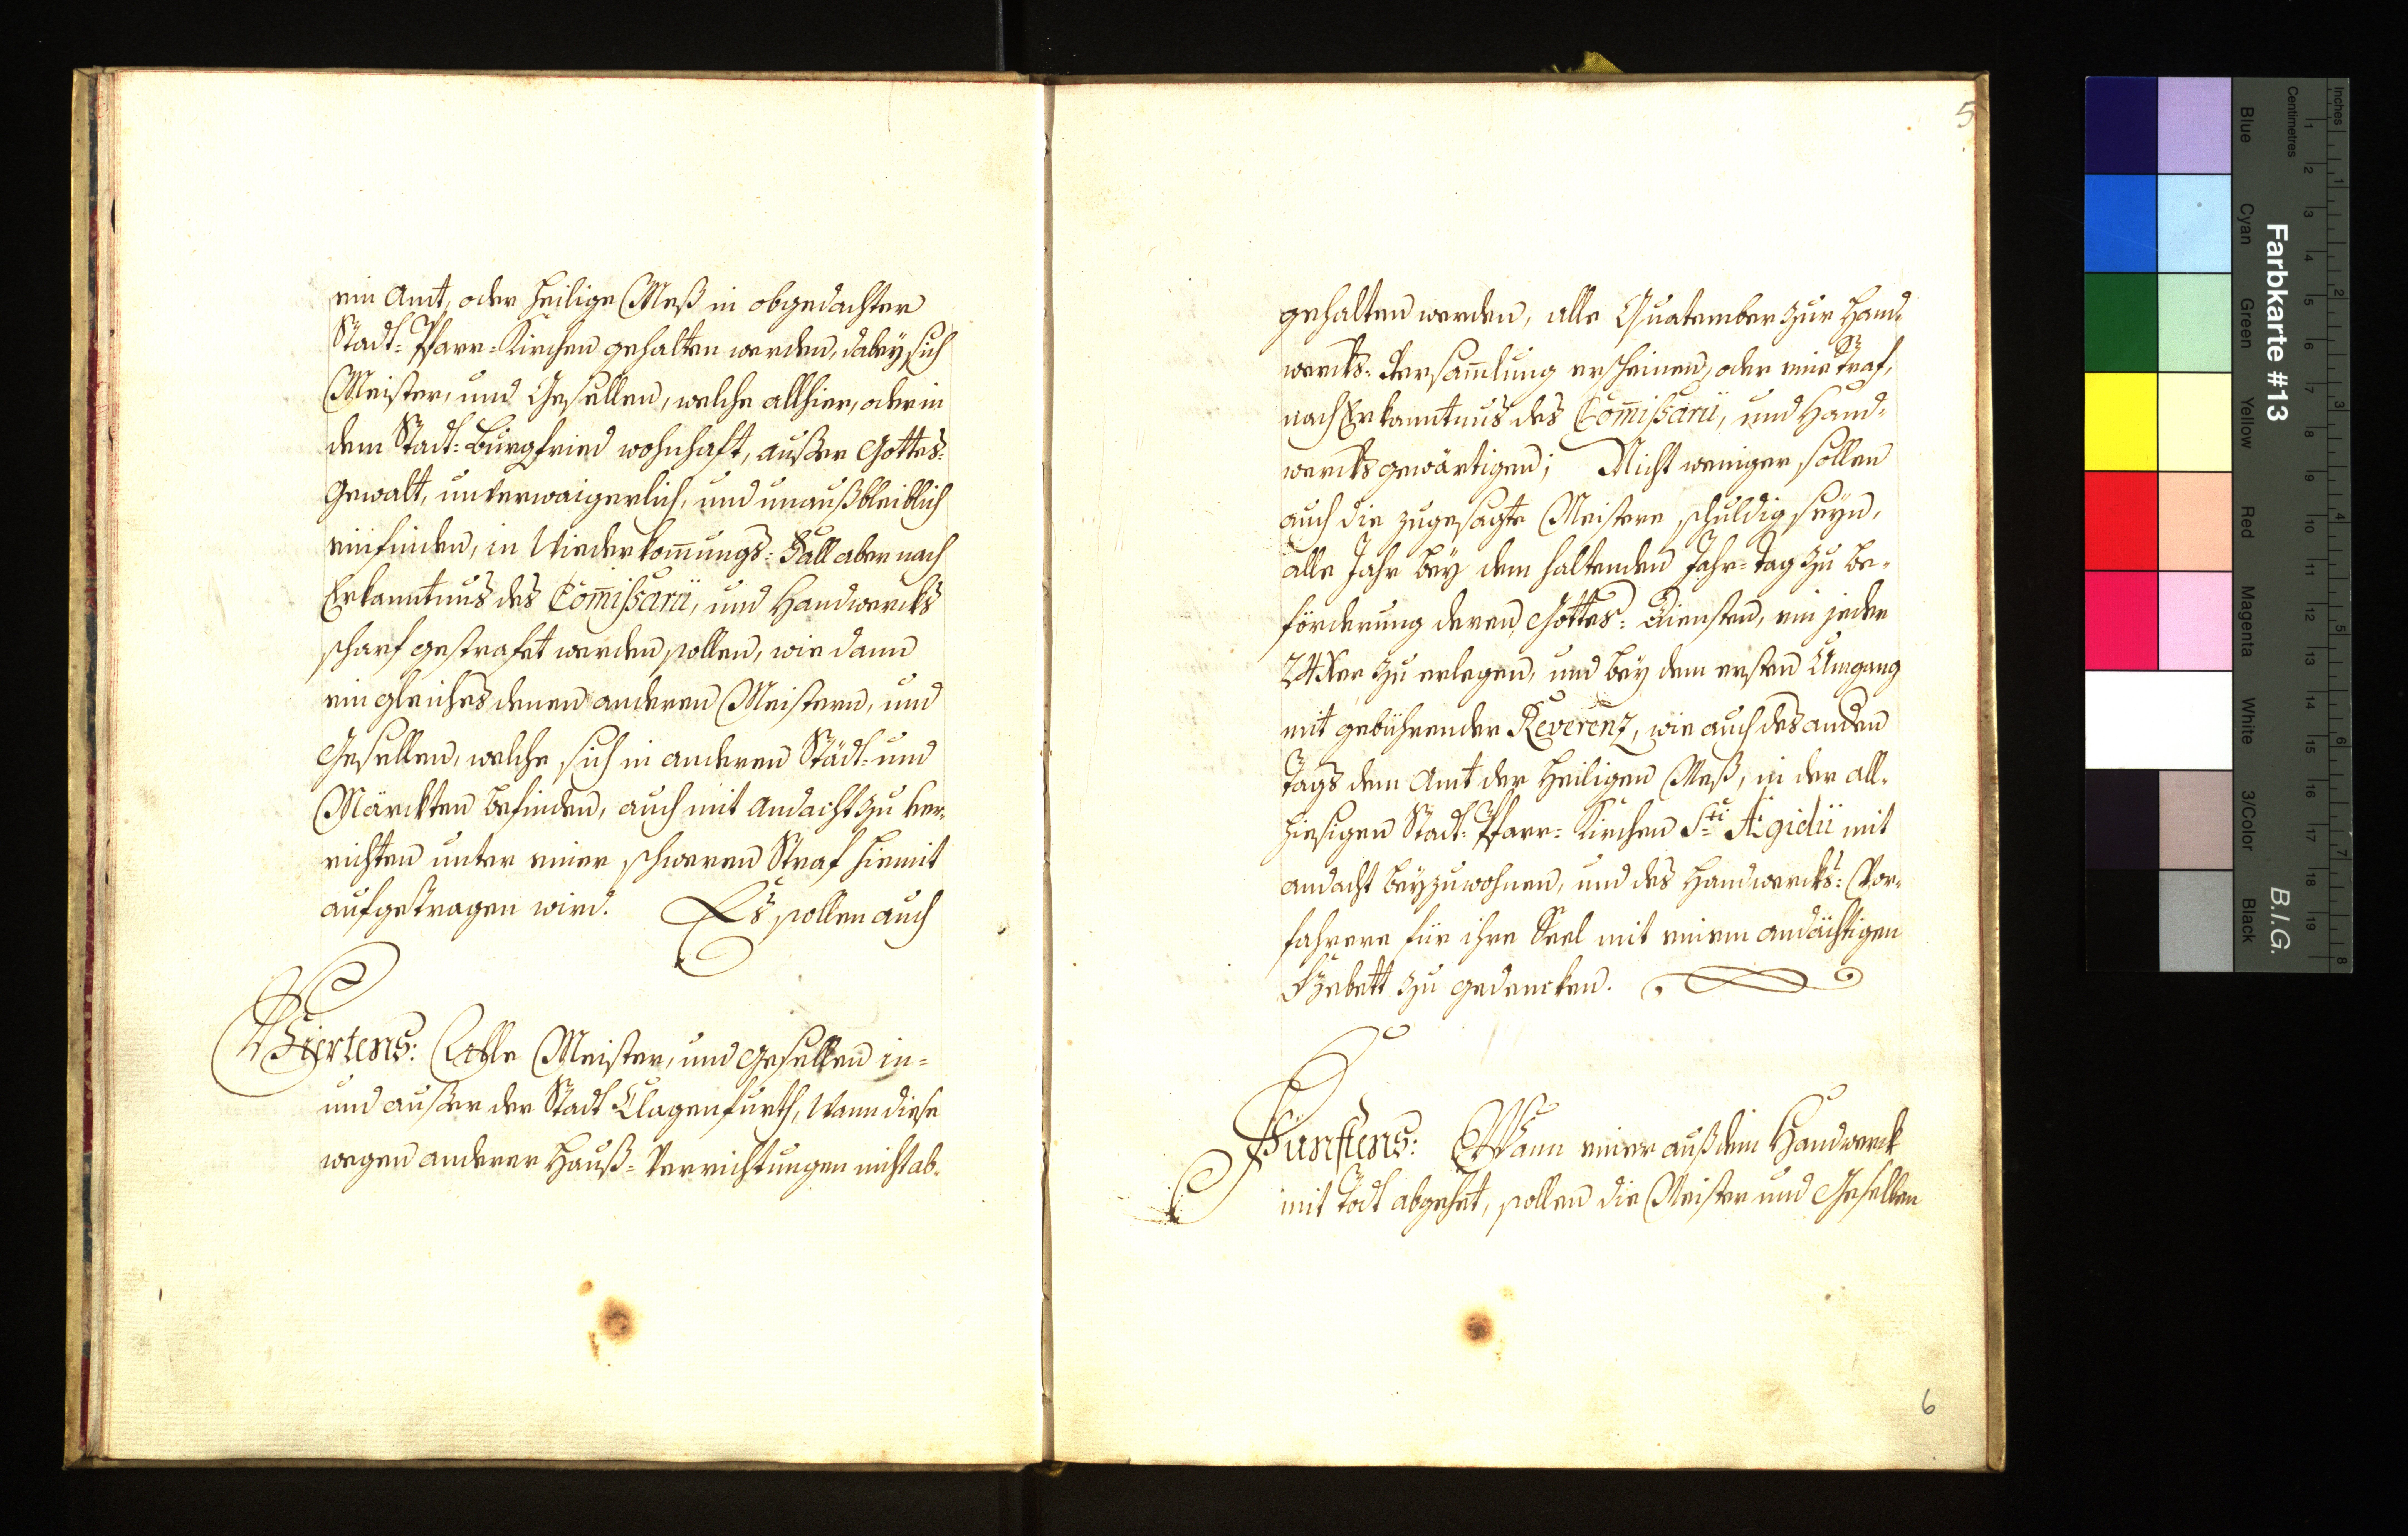 ein Amt, oder heilige Meß in obgedachter
Stadt-Pfarr-Kirchen gehalten werden, dabey sich
Meister, und Gesellen, welche allhier, oder in
dem Stadt-Burgfried wohnhaft, ausser Gottes-
Gewalt, unverwaigerlich, und unaußbleiblich
einfinden, in Wiederkom̅ungs-Fall aber nach
Erkanntnus des Com̅ißarii, und Handwercks
scharf gestrafet werden sollen, wie dann
ein gleiches denen anderen Meistern, und
Gesellen, welche sich in anderen Städt- und
Märckten befinden, auch mit Andacht zu ver-
richten unter einer schweren Straf hiemit
aufgetragen wird. Es sollen auch
Viertens: Alle Meister, und Gesellen in-
und ausser der Stadt Clagenfurth, Wann diese
wegen anderer Hauß-Verrichtungen nicht ab-
5
gehalten werden, alle Quatember zur Hand-
wercks-Versam̅lung erscheinen, oder eine Straf,
nach Erkanntnus des Com̅ißarii, und Hand-
wercks gewärtigen; Nicht weniger sollen
auch die zugesagte Meistere schuldig seyn,
alle Jahr bey dem haltenden Jahr-Tag zu Be-
förderung deren Gottes-Diensten, ein jeder
24 Xer zu erlegen, und bey dem ersten Umgang
mit gebührender Reverenz, wie auch des anden
Tags dem Amt der Heiligen Meß, in der all-
hiesigen Stadt-Pfarr-Kirchen Sti Ægidii mit
Andacht beyzuwohnen, und des Handwercks-Vor-
fahrere für ihre Seel mit einem andächtigen
Gebett zu gedencken.
Fünftens: Wann einer auß dem Handwerck
mit Todt abgehet, sollen die Meister und Gesellen
6
Inches
Centimetres
Farbkarte #13
B.I.G.
Blue
Cyan
Green
Yellow
Red
Magenta
White
3/Color
Black